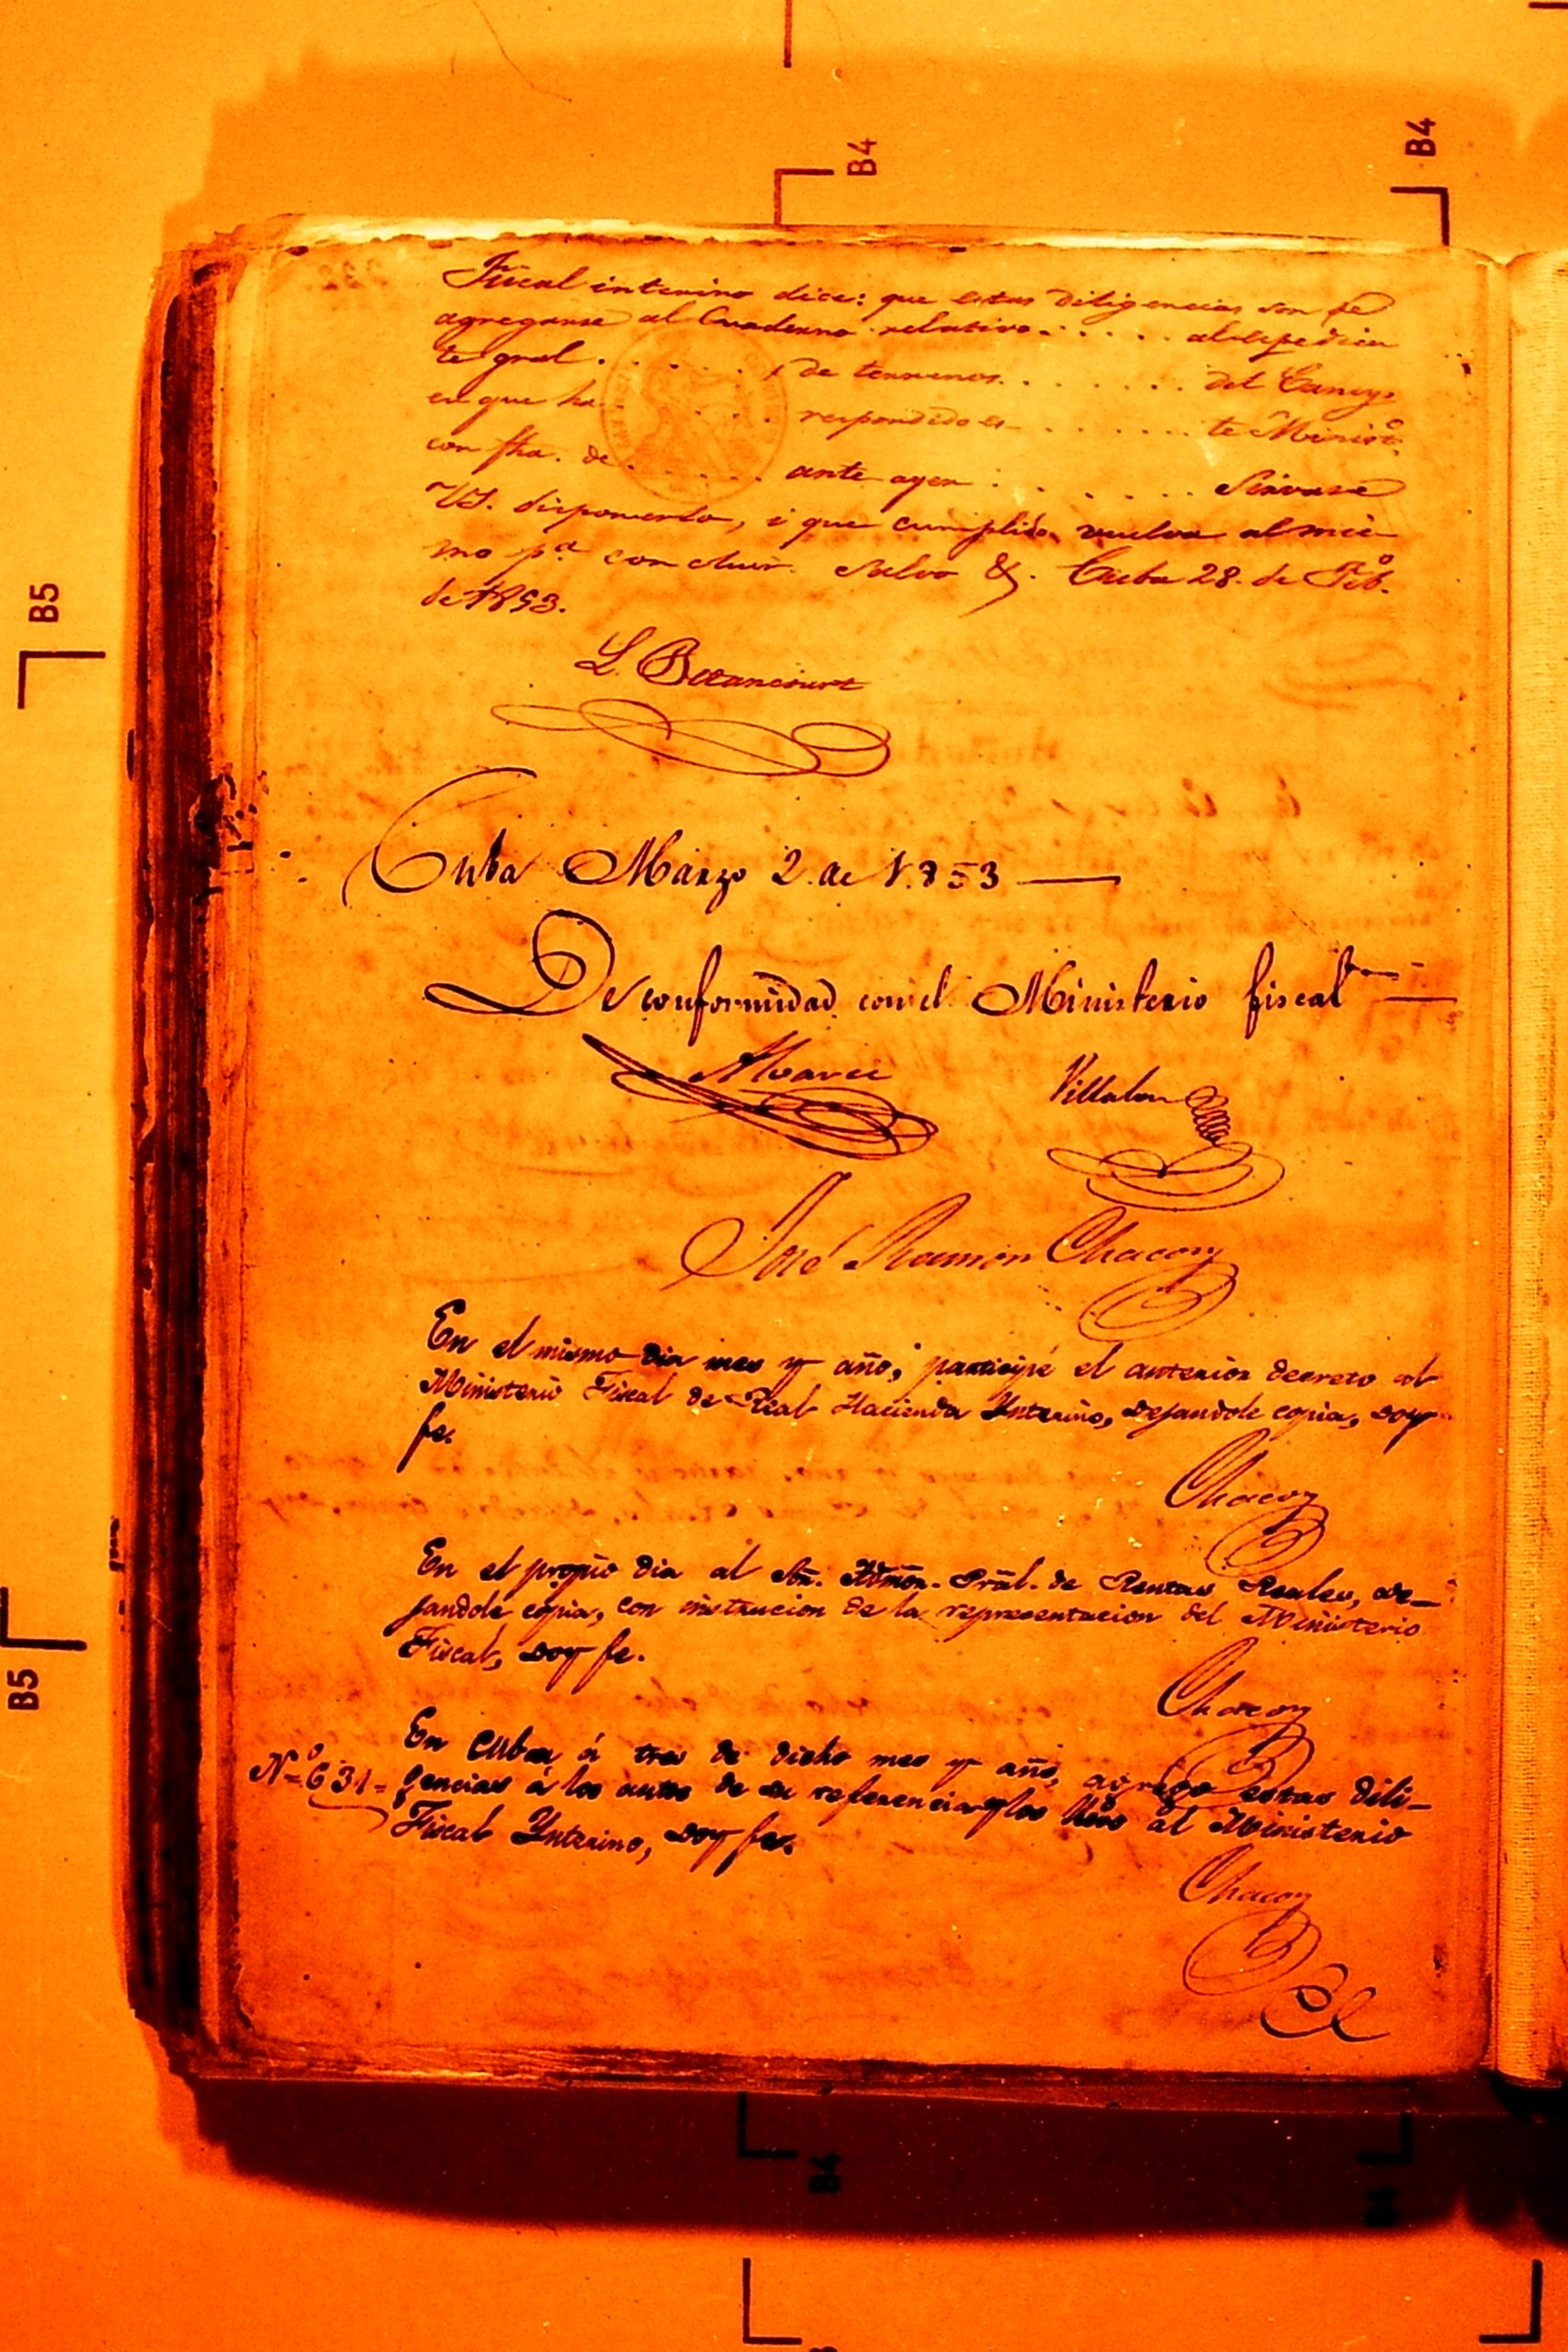 B4
B4
Fiscal interino dice: que estas diligencias son de
agregarse al Cuaderno relativo . . . . . al espedien
te gral . . . . . . , de terrenos . . . . . . . del Caney,
en que ha . . . . . respondido es . . . . . . . te Ministº
con fha. de . . . . . ante ayer . . . . . . . Sirvase
VS. disponerlo, i que cumplido vuelva al mis-
mo pª concluir. Salvo &. Cuba 28. de Febº
de 1853.
B5
L. Betancourt
Cuba Marzo 2. de 1.853
De conformidad con el Ministerio fiscal
Alvarez
Villalon
José Ramon Chacon
En el mismo dia mes y año, participé el anterior decreto al
Ministerio Fiscal de Real Hacienda Ynterino, dejandole copia, doy
fe.
Chacon
En el propio dia al Sõr. Admõn. Grãl. de Rentas Reales, de-
jandole copia, con instrucion de la representacion del Ministerio
Fiscal, doy fe.
B5
Chacon
En Cuba, á tres de dicho mes y año, agrego estas dili-
Nº 631= gencias á los autos de su referencia y los llevo al Ministerio
Fiscal Ynterino, doy fe.
Chacon
B4
B4